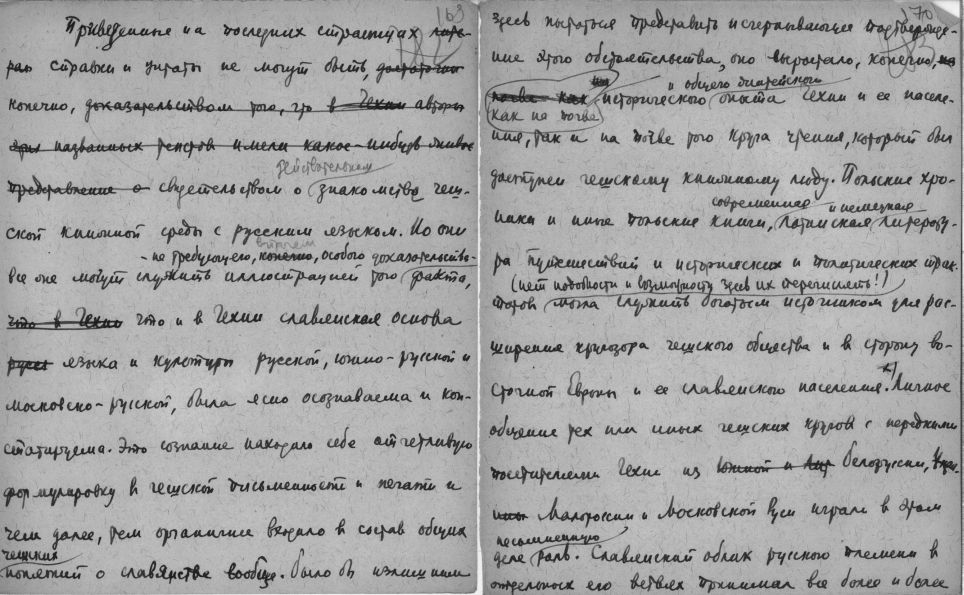 169
Приведенные на последних страницах лите-
рат справки и цитаты не могут быть, достаточно
конечно, доказательством того, что в Чехии авторы
этих названных текстов имели какое-нибудь живое
действительном
представление о свидетельством о знакомстве чеш-
ской книжной среды с русским языком. Но они
впрочем
- не требующего, конечно, особого доказательств. -
все они могут служить иллюстрацией того факта,
что в Чехии что и в Чехии славянская основа
русск языка и культуры русской, южно-русской и
московско-русской, была ясно осознаваема и кон-
статируема. Это сознание находило себе отчетливую
формулировку в чешской письменности и печати и
чем далее, тем органичнее входило в состав общих
чешских
понятий о славянстве вообще. Было бы излишним
170
здесь пытаться представить исчерпывающее подтвержде-
ние этого обстоятельства, оно вырастало, конечно, на
и общего политического
почве как исторического опыта Чехии и ее населе-
как на почве
ния, так и на почве того круга чтения, который был
доступен чешскому книжному люду. Польские хро-
современная и немецкая
ники и иные польские книги, латинская литерату-
ра путешествий и исторических и политических трак-
(нет надобности и возможности здесь их перечислять!)
татов могла служить богатым источником для рас-
ширения кругозора чешского общества и в сторону во-
сточной Европы и ее славянского населения. х) Личное
общение тех или иных чешских кругов с нередкими
посетителями Чехии из Южной и Лит Белоруссии, Украи-
ины Малороссии и Московской Руси играли в этом
несомненную
деле роль. Славянский облик русского племени в
отдельных его ветвях принимал все более и более